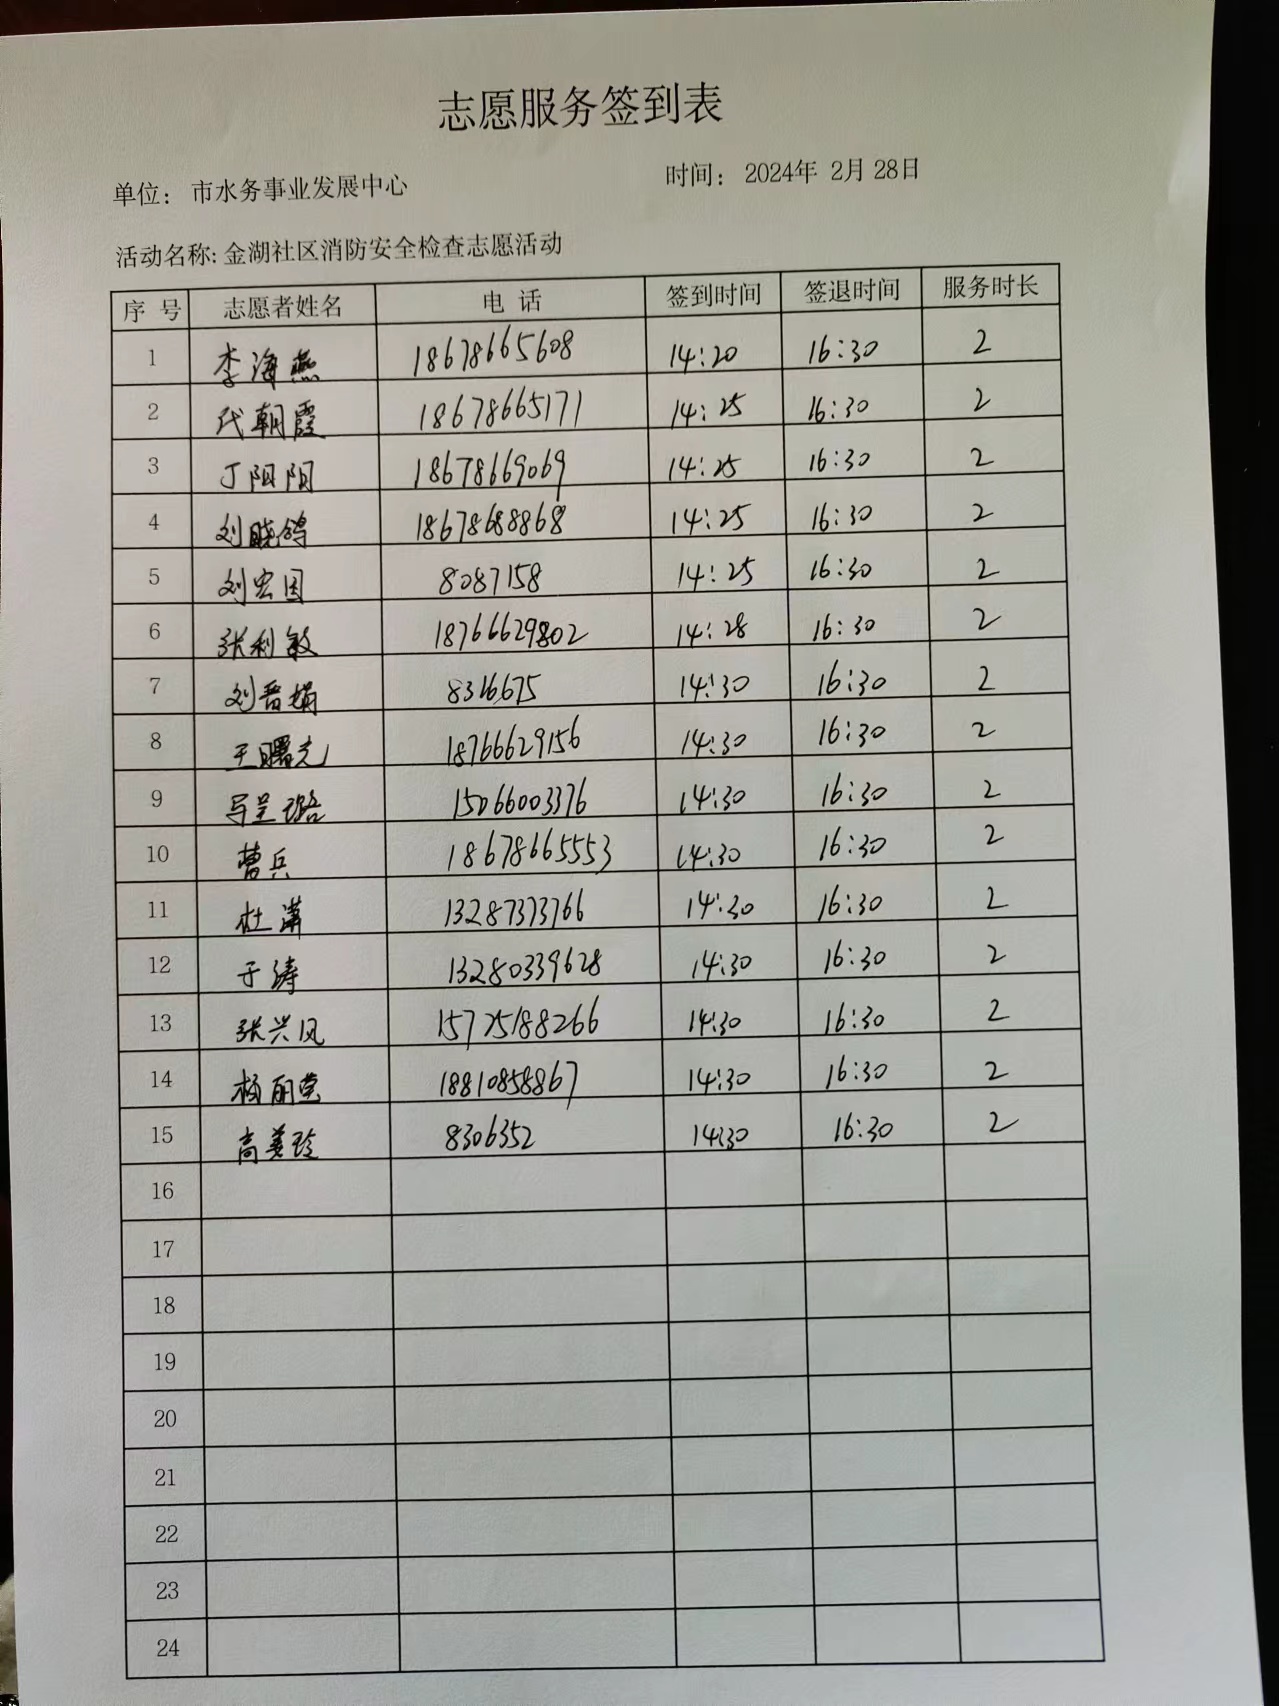 志愿服务签到表
单位： 市水务事业发展中心 时间： 2024年 2月 28日
活动名称: 金湖社区消防安全检查志愿活动
序 号 志愿者姓名 电 话 签到时间 签退时间 服务时长
1 李海燕 18678665608 14:20 16:30 2
2 代朝霞 18678665171 14:25 16:30 2
3 丁阳阳 18678669069 14:25 16:30 2
4 刘晓鸽 18678688868 14:25 16:30 2
5 刘宏国 8087158 14:25 16:30 2
6 张利敏 18766629802 14:28 16:30 2
7 刘晋娟 8316675 14:30 16:30 2
8 王曙光 18766629156 14:30 16:30 2
9 呈璐 15066003376 14:30 16:30 2
10 曹兵 18678665553 14:30 16:30 2
11 杜潇 13287373766 14:30 16:30 2
12 于涛 13280339628 14:30 16:30 2
13 张兴凤 15725188266 14:30 16:30 2
14 杨丽莹 18810858867 14:30 16:30 2
15 高美玲 8306352 14:30 16:30 2
16
17
18
19
20
21
22
23
24